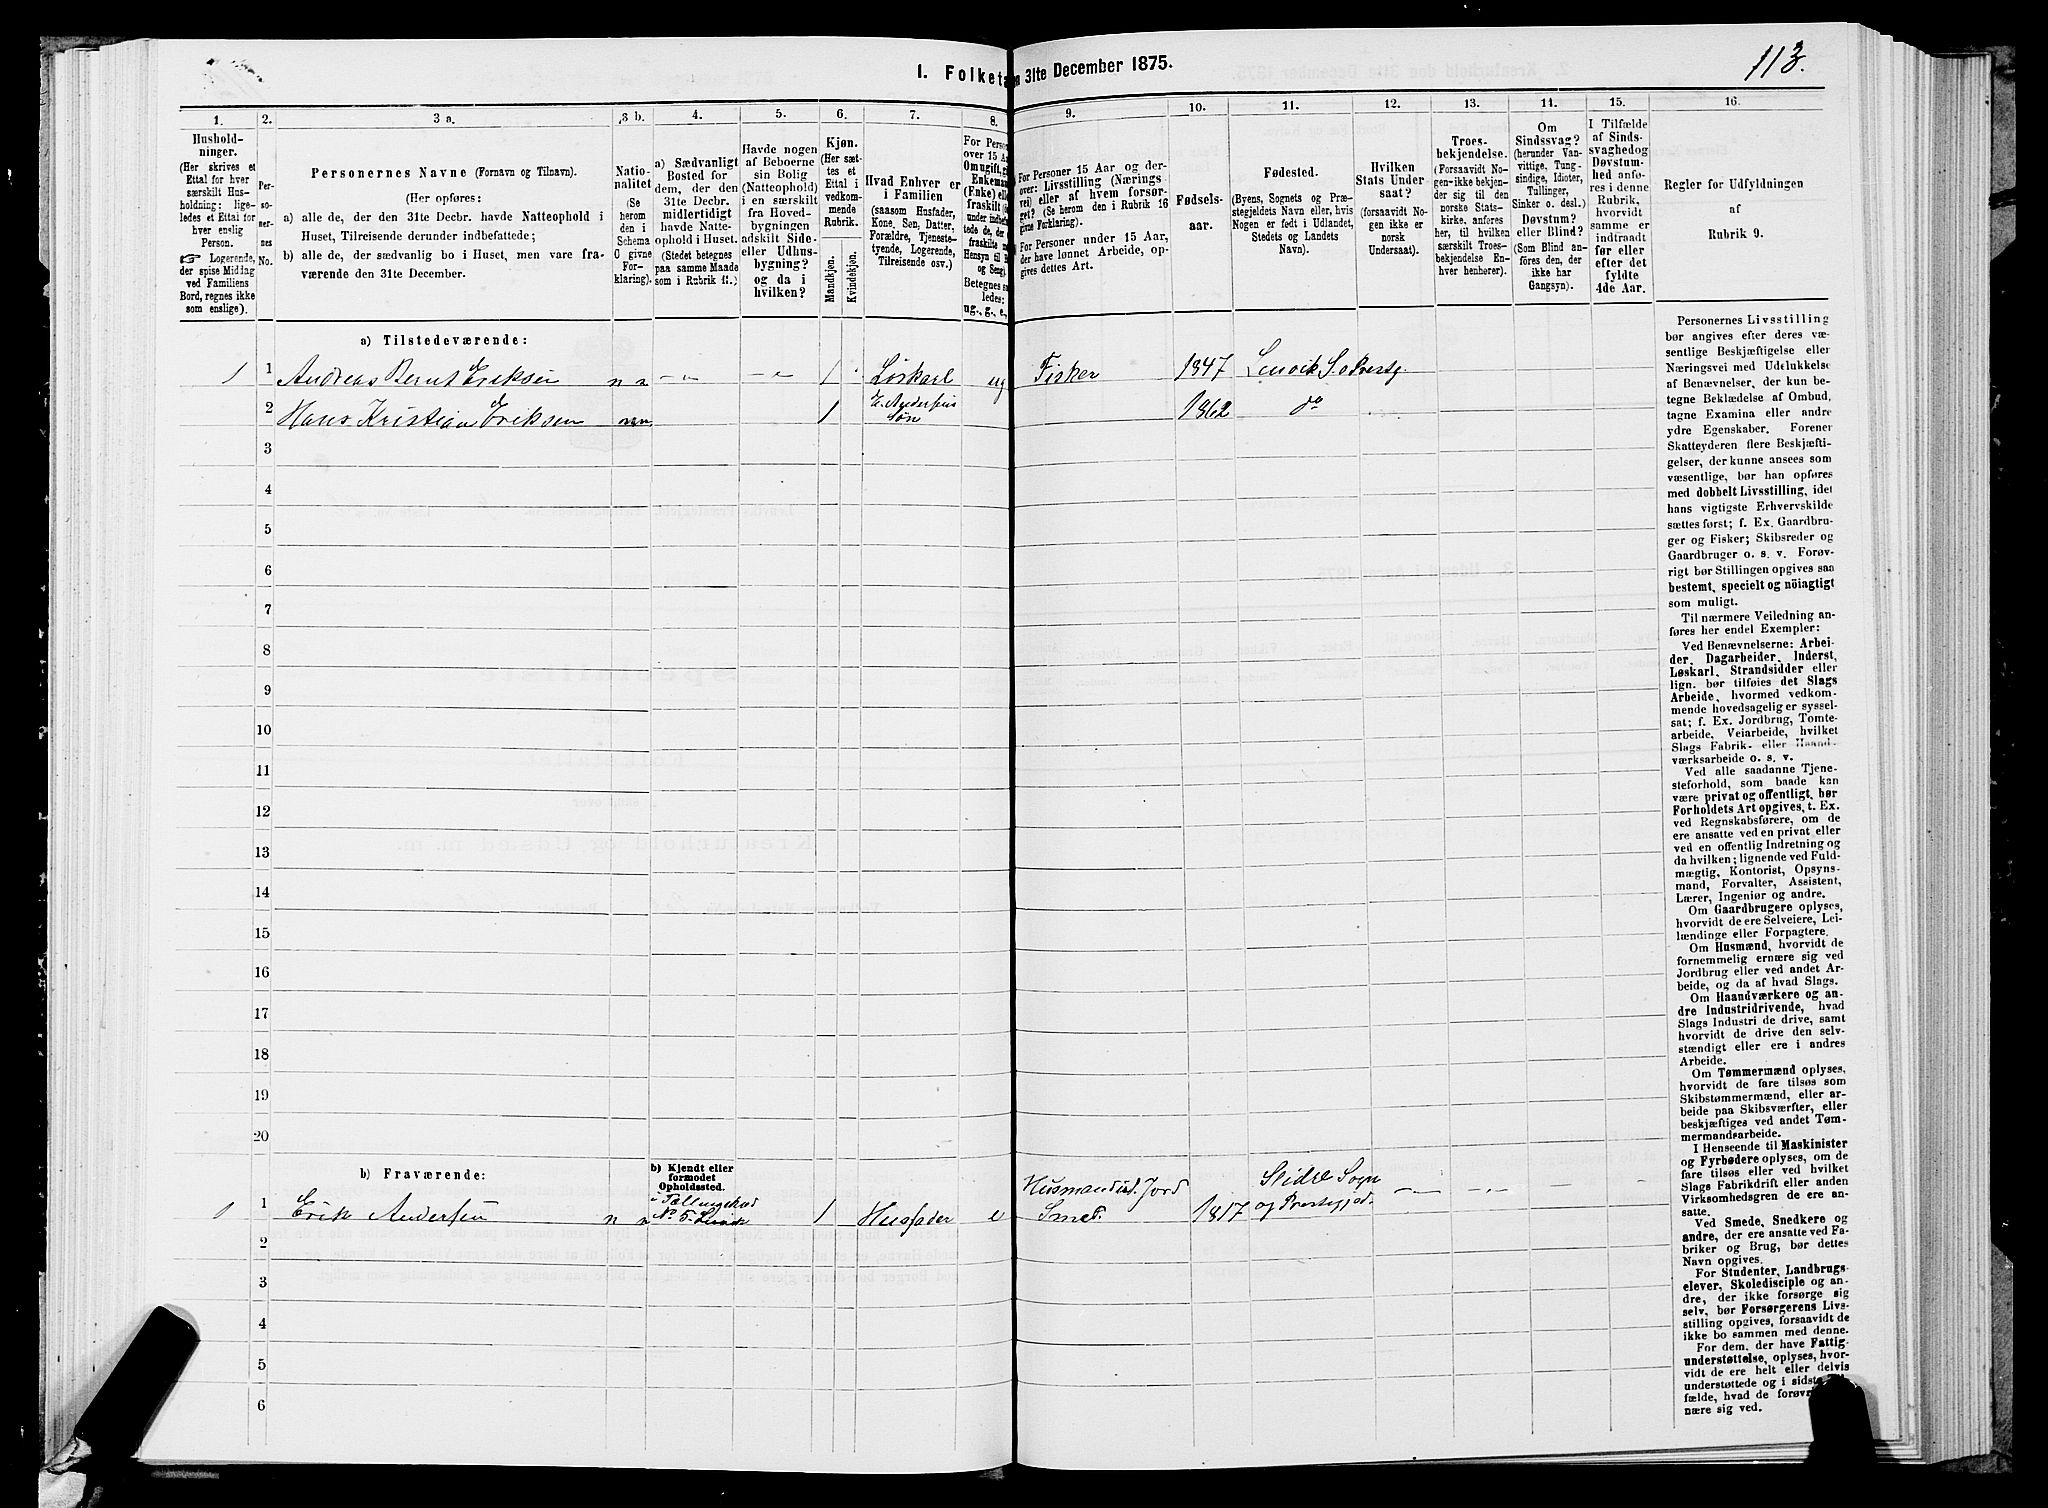 113.
1. Folketa
n 31te December 1875.
1.
2.
3 a.
3 b.
4.
5.
6.
7.
8.
9.
10.
11.
12.
13.
14.
15.
16.
Hushold-
ninger.
(Her skrives et
Ettal for hver
særskilt Hus-
holdning: lige-
ledes et Ettal for
hver enslig
Person.
☞ Logerende,
der spise Middag
ved Familiens
Bord, regnes ikke
som enslige).
Per-
so-
ner-
nes
No.
Personernes Navne (Fornavn og Tilnavn).
(Her opføres:
a) alle de, der den 31te Decbr. havde Natteophold i
Huset, Tilreisende derunder indbefattede;
b) alle de, der sædvanlig bo i Huset, men vare fra-
værende den 31te December.
Natio-
nalitet
(Se
herom
den i
Schema
O givne
For-
klaring).
a) Sædvanligt
Bosted for
dem, der den
31te Decbr.
midlertidigt
havde Natte-
ophold i Huset.
(Stedet betegnes
paa samme Maade
som i Rubrik 11.)
Havde nogen
af Beboerne
sin Bolig
(Natteophold)
i en særskilt
fra Hoved-
bygningen
adskilt Side-
eller Udhus-
bygning?
og da i
hvilken?
Kjøn.
(Her sæt-
tes et
Ettal i
vedkom-
mende
Rubrik.
Mandkjøn.
Kvindekjøn.
Hvad Enhver er
i Familien
(saasom Husfader,
Kone, Søn, Datter,
Forældre, Tjeneste-
tyende, Logerende,
Tilreisende osv.)
For Person
over 15 Aa
Omugift, gi
Enkeman
(Enke) elle
fraskilt
Betegnes sa
ledes:
ug., g., e.,
For Personer 15 Aar og der-
over: Livsstilling (Nærings-
vei) eller af hvem forsør-
get? (Se herom i Rubrik 16
givne Forklaring).
For Personer under 15 Aar,
der have lønnet Arbeide, op-
gives dettes Art.
Fødsels-
aar.
Fødested.
(Byens, Sognets og Præ-
stegjeldets Navn eller, hvis
Nogen er født i Udlandet,
Stedets og Landets
Navn).
Hvilken
Stats Under
saat?
(forsaavidt No-
gen ikke er
norsk
Undersaat).
Troes-
bekjendelse.
(Forsaavidt No-
gen ikke bekjen-
der sig til den
norske Stats-
kirke, anføres
her, til hvilken
særskilt Troes-
bekjendelse En-
hver henhører).
Om
Sindssvag?
(herunder Van-
vittige, Tung-
sindige, Idioter,
Tullinger,
Sinker o. desl.)
Døvstum?
eller Blind?
(Som Blind an-
føres den, der
ikke har
Gangsyn).
I Tilfælde
af Sinds-
svaghedog
Døvstum-
hed anfø-
res i denne
Rubrik,
hvorvidt
samme er
indtraadt
før eller
efter det
fyldte
4de Aar.
Regler for Udfyldningen
af
Rubrik 9.
a) Tilstedeværende:
1 1 Andreas Bernt Eriksen n n 1 Løskarl ug Fisker 1847 Lenvik S. o Prestg.
2 Hans Kristian Eriksen n n 1 E. Andersens Søn 1862 do
3
4
5
6
7
8
9
10
11
12
13
14
15
16
17
18
19
20
b) Fraværende:
b) Kjendt eller
formodet
Opholdssted.
1 1 Erik Andersen n n i Tællingskred No 5. Lenvik 1 Husfader e Husmand ud. Jord Smed. 1817 Slidre Sogn og Prestegjed.
2
3
4
5
6
Personernes Livsstilling
bør angives efter deres væ-
sentlige Beskjæftigelse eller
Næringsvei med Udelukkelse
af Benævnelser, der kun be-
tegne Beklædelse af Ombud,
tagne Examina eller andre
ydre Egenskaber. Forener
Skatteyderen flere Beskjæfti-
gelser, der kunne ansees som
væsentlige, bør han opføres
med dobbelt Livsstilling, idet
hans vigtigste Erhvervskilde
sættes først; f. Ex. Gaardbru-
ger og Fisker; Skibsreder og
Gaardbruger o. s. v. Forøv-
rigt bør Stillingen opgives saa
bestemt, specielt og nöiagtigt
som muligt.
Til nærmere Veiledning an-
føres her endel Exempler:
Ved Benævnelserne: Arbei-
der, Dagarbeider, Inderst,
Løskarl, Strandsidder eller
lign. bør tilføies det Slags
Arbeide, hvormed vedkom-
mende hovedsagelig er syssel-
sat; f. Ex. Jordbrug, Tomte-
arbeide, Veiarbeide, hvilket
Slags Fabrik- eller Haand-
værksarbeide o. s. v.
Ved alle saadanne Tjene-
steforhold, som baade kan
være privat og offentligt, bør
Forholdets Art opgives, t. Ex.
ved Regnskabsførere, om de
ere ansatte ved en privat eller
ved en offentlig Indretning og
da hvilken; lignende ved Fuld-
mægtig, Kontorist, Opsyns-
mand, Forvalter, Assistent,
Lærer, Ingeniør og andre.
Om Gaardbrugere oplyses,
hvorvidt de ere Selveiere, Lei-
lændinge eller Forpagtere.
Om Husmænd, hvorvidt de
fornemmelig ernære sig ved
Jordbrug eller ved andet Ar-
beide, og da af hvad Slags.
Om Haandværkere og an-
dre Industridrivende, hvad
Slags Industri de drive, samt
hvorvidt de drive den selv-
stændigt eller ere i andres
Arbeide.
Om Tømmermænd oplyses,
hvorvidt de fare tilsøs som
Skibstømmermænd, eller ar-
beide paa Skibsværfter, eller
beskjæftiges ved andet Tøm-
mermandsarbeide.
I Henseende til Maskinister
og Fyrbødere oplyses, om de
fare tilsøs eller ved hvilket
Slags Fabrikdrift eller anden
Virksomhedsgren de ere an-
satte.
Ved Smede, Snedkere og
andre, der ere ansatte ved Fa-
briker og Brug, bør dettes
Navn opgives.
For Studenter, Landbrugs-
elever, Skoledisciple og an-
dre, der ikke forsørge sig
selv, bør Forsørgerens Livs-
stilling opgives, forsaavidt de
ikke bo sammen med denne.
For dem, der have Fattig-
understøttelse, oplyses, hvor-
vidt de ere helt eller delvis
understøttede og i sidste
fælde, hvad de forøv
nære sig ved.